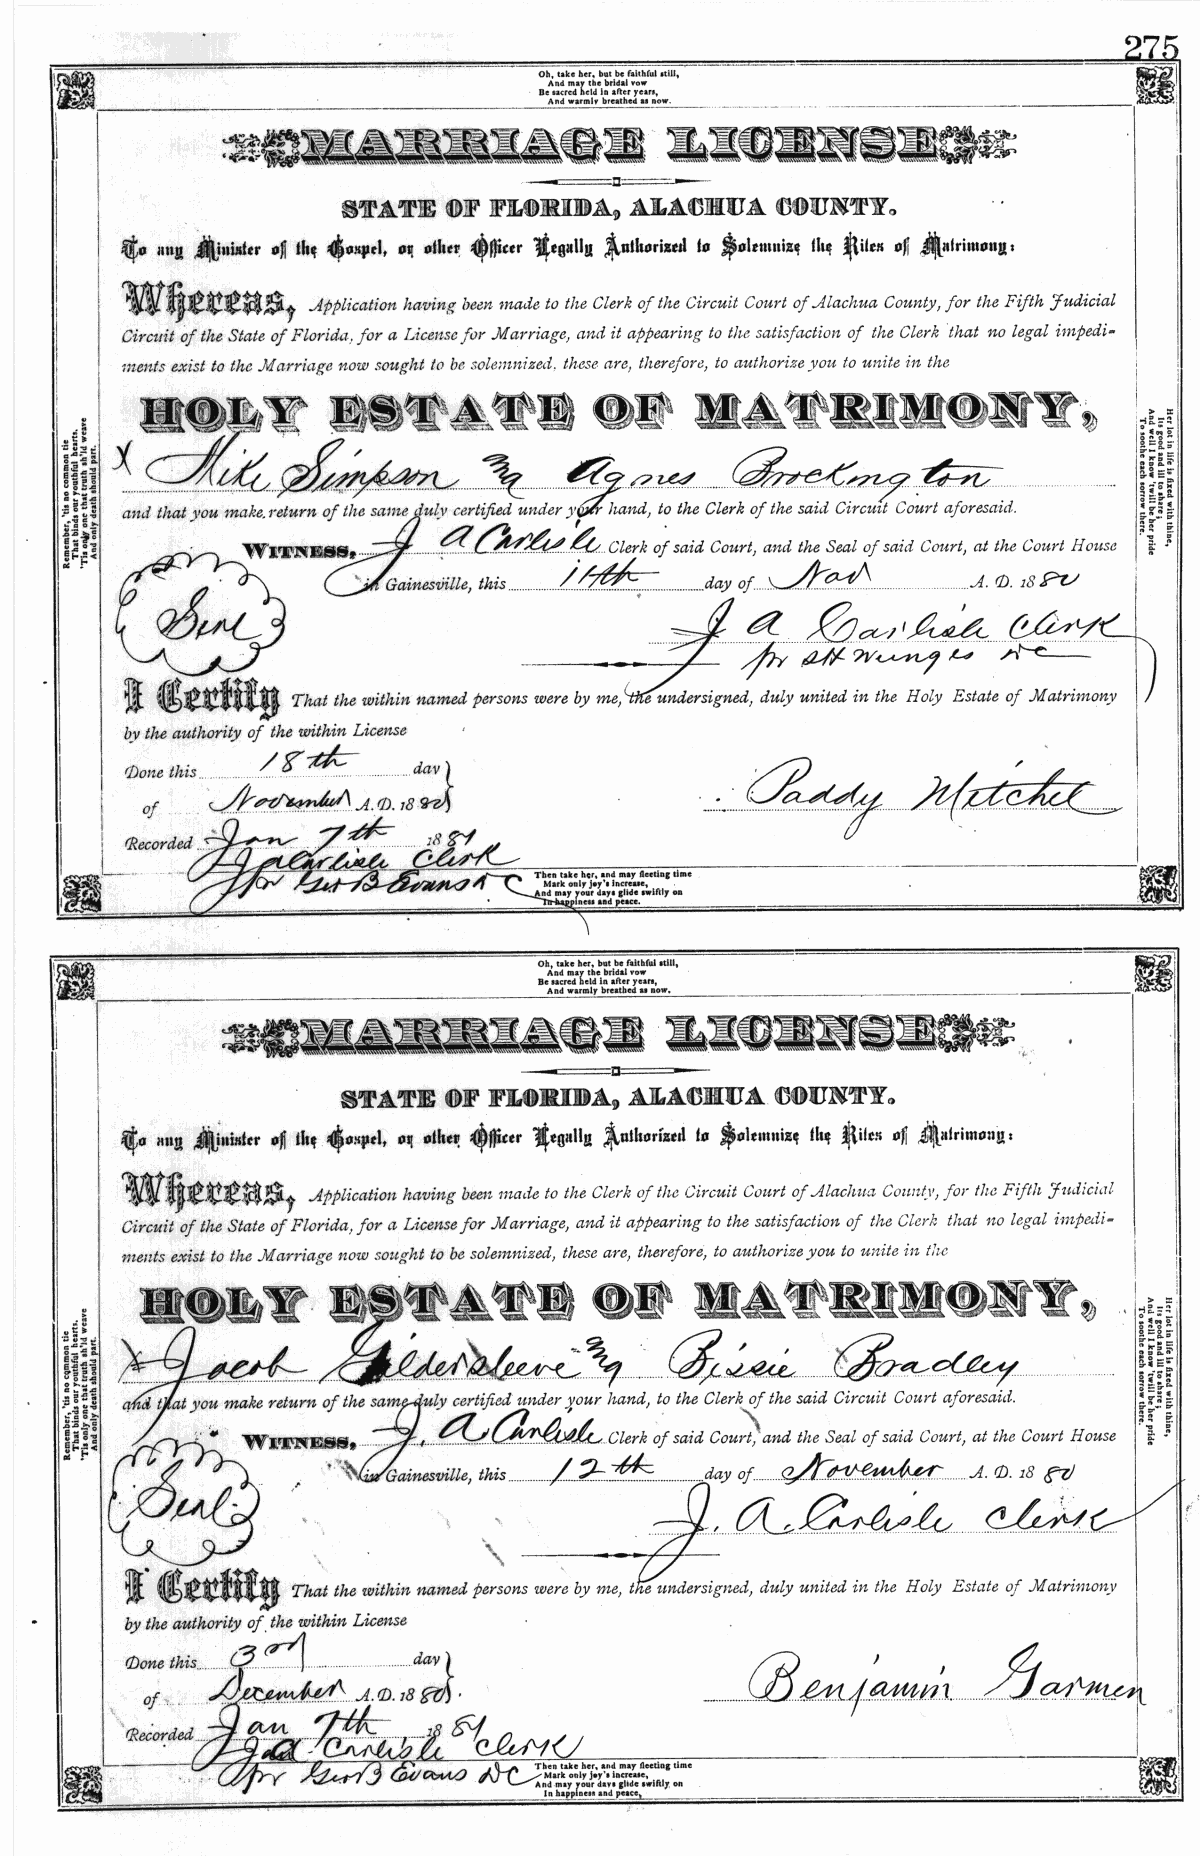 275
Oh, take her, but be faithful still,
And may the bridal vow
Be sacred held in after years,
And warmly breathed as now.
MARRIAGE LICENSE
STATE OF FLORIDA, ALACHUA COUNTY.
To any Minister of the Gospel, or other Officer Legally Authorized to Solemnize the Rites of Matrimony:
Whereas, Application having been made to the Clerk of the Circuit Court of Alachua County, for the Fifth Judicial
Circuit of the State of Florida, for a License for Marriage, and it appearing to the satisfaction of the Clerk that no legal impedi-
ments exist to the Marriage now sought to be solemnized, these are, therefore, to authorize you to unite in the
HOLY ESTATE OF MATRIMONY,
X Mike Simpson and Agnes Brockington
and that you make return of the same duly certified under your hand, to the Clerk of the said Circuit Court aforesaid.
WITNESS, J A Carlisle Clerk of said Court, and the Seal of said Court, at the Court House
in Gainesville, this 11th day of Nov A. D. 1880
Seal
J A Carlisle Clerk
pr SH DC
I Certify That the within named persons were by me, the undersigned, duly united in the Holy Estate of Matrimony
by the authority of the within License
Done this 18th day
of November A. D. 1880
Paddy Mitchel
Recorded Jan 7th 1881
J A Carlisle Clerk
pr Geo B Evans DC
Then take her, and may fleeting time
Mark only joy's increase,
And may your days glide swiftly on
In happiness and peace.
Remember, 'tis no common tie
That binds our youthful hearts,
'Tis only one that truth sh'ld weave
And only death should part.
Her lot in life is fixed with thine,
Its good and ill to share;
And well I know 'twill be her pride
To soothe each sorrow there.
Oh, take her, but be faithful still,
And may the bridal vow
Be sacred held in after years,
And warmly breathed as now.
MARRIAGE LICENSE
STATE OF FLORIDA, ALACHUA COUNTY.
To any Minister of the Gospel, or other Officer Legally Authorized to Solemnize the Rites of Matrimony:
Whereas, Application having been made to the Clerk of the Circuit Court of Alachua County, for the Fifth Judicial
Circuit of the State of Florida, for a License for Marriage, and it appearing to the satisfaction of the Clerk that no legal impedi-
ments exist to the Marriage now sought to be solemnized, these are, therefore, to authorize you to unite in the
HOLY ESTATE OF MATRIMONY,
X Jacob Gildersleeve and Bissie Bradley
and that you make return of the same duly certified under your hand, to the Clerk of the said Circuit Court aforesaid.
WITNESS, J. A. Carlisle Clerk of said Court, and the Seal of said Court, at the Court House
in Gainesville, this 12th day of November A. D. 1880
Seal
J. A. Carlisle Clerk
I Certify That the within named persons were by me, the undersigned, duly united in the Holy Estate of Matrimony
by the authority of the within License
Done this 3rd day
of December A. D. 1880
Benjamin Garmen
Recorded Jan 7th 1881
J A Carlisle Clerk
pr Geo B Evans DC
Then take her, and may fleeting time
Mark only joy's increase,
And may your days glide swiftly on
In happiness and peace,
Remember, 'tis no common tie
That binds our youthful hearts.
'Tis only one that truth sh'ld weave
And only death should part.
Her lot in life is fixed with thine,
Its good and ill to share;
And well I know 'twill be her pride
To soothe each sorrow there.